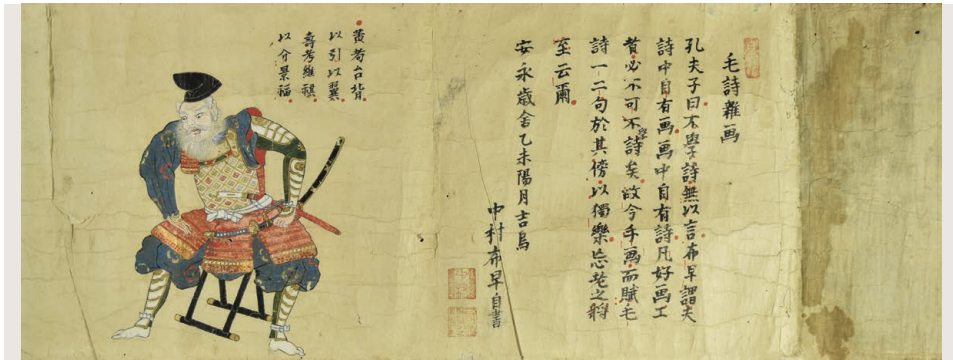 毛詩雜画
孔夫子曰不學詩無以言布早謂夫
詩中自有画画中自有詩凡好画工
者必不可不學詩矣故今手画而賦毛
詩一二句於其傍以獨樂忘老之將
至云爾
安永歲舍乙未陽月吉烏
中村布早自書
黄耇台背
以引以翼
壽考維祺
以介景福